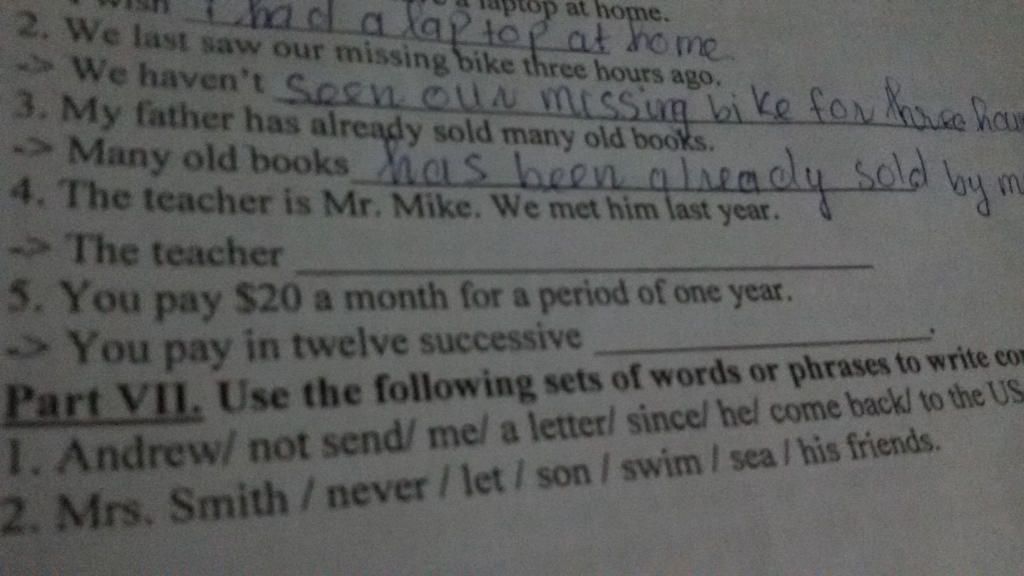 I had a laptop at home.
a laptop at home
2. We last saw our missing bike three hours ago.
-> We haven't seen our missing bike for three
3. My father has already sold many old books.
-> Many old books has been already sold by
4. The teacher is Mr. Mike. We met him last year.
-> The teacher ____________
5. You pay $20 a month for a period of one year.
-> You pay in twelve successive ____________.
Part VII. Use the following sets of words or phrases to write
1. Andrew/ not send/ me/ a letter/ since/ he/ come back/ to the US
2. Mrs. Smith / never / let / son / swim / sea / his friends.